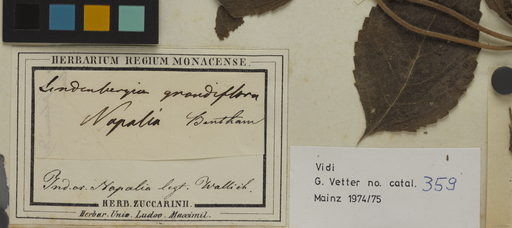 HERBARIUM REGIUM MONACENSE.
Lindenbergia grandiflora
Napalia Bentham
Ind. or. Napalia legt. Wallich.
HERB. ZUCCARINII.
Herbar. Univ. Ludov. Maximil.
Vidi
G. Vetter no. catal. 359
Mainz 1974/75